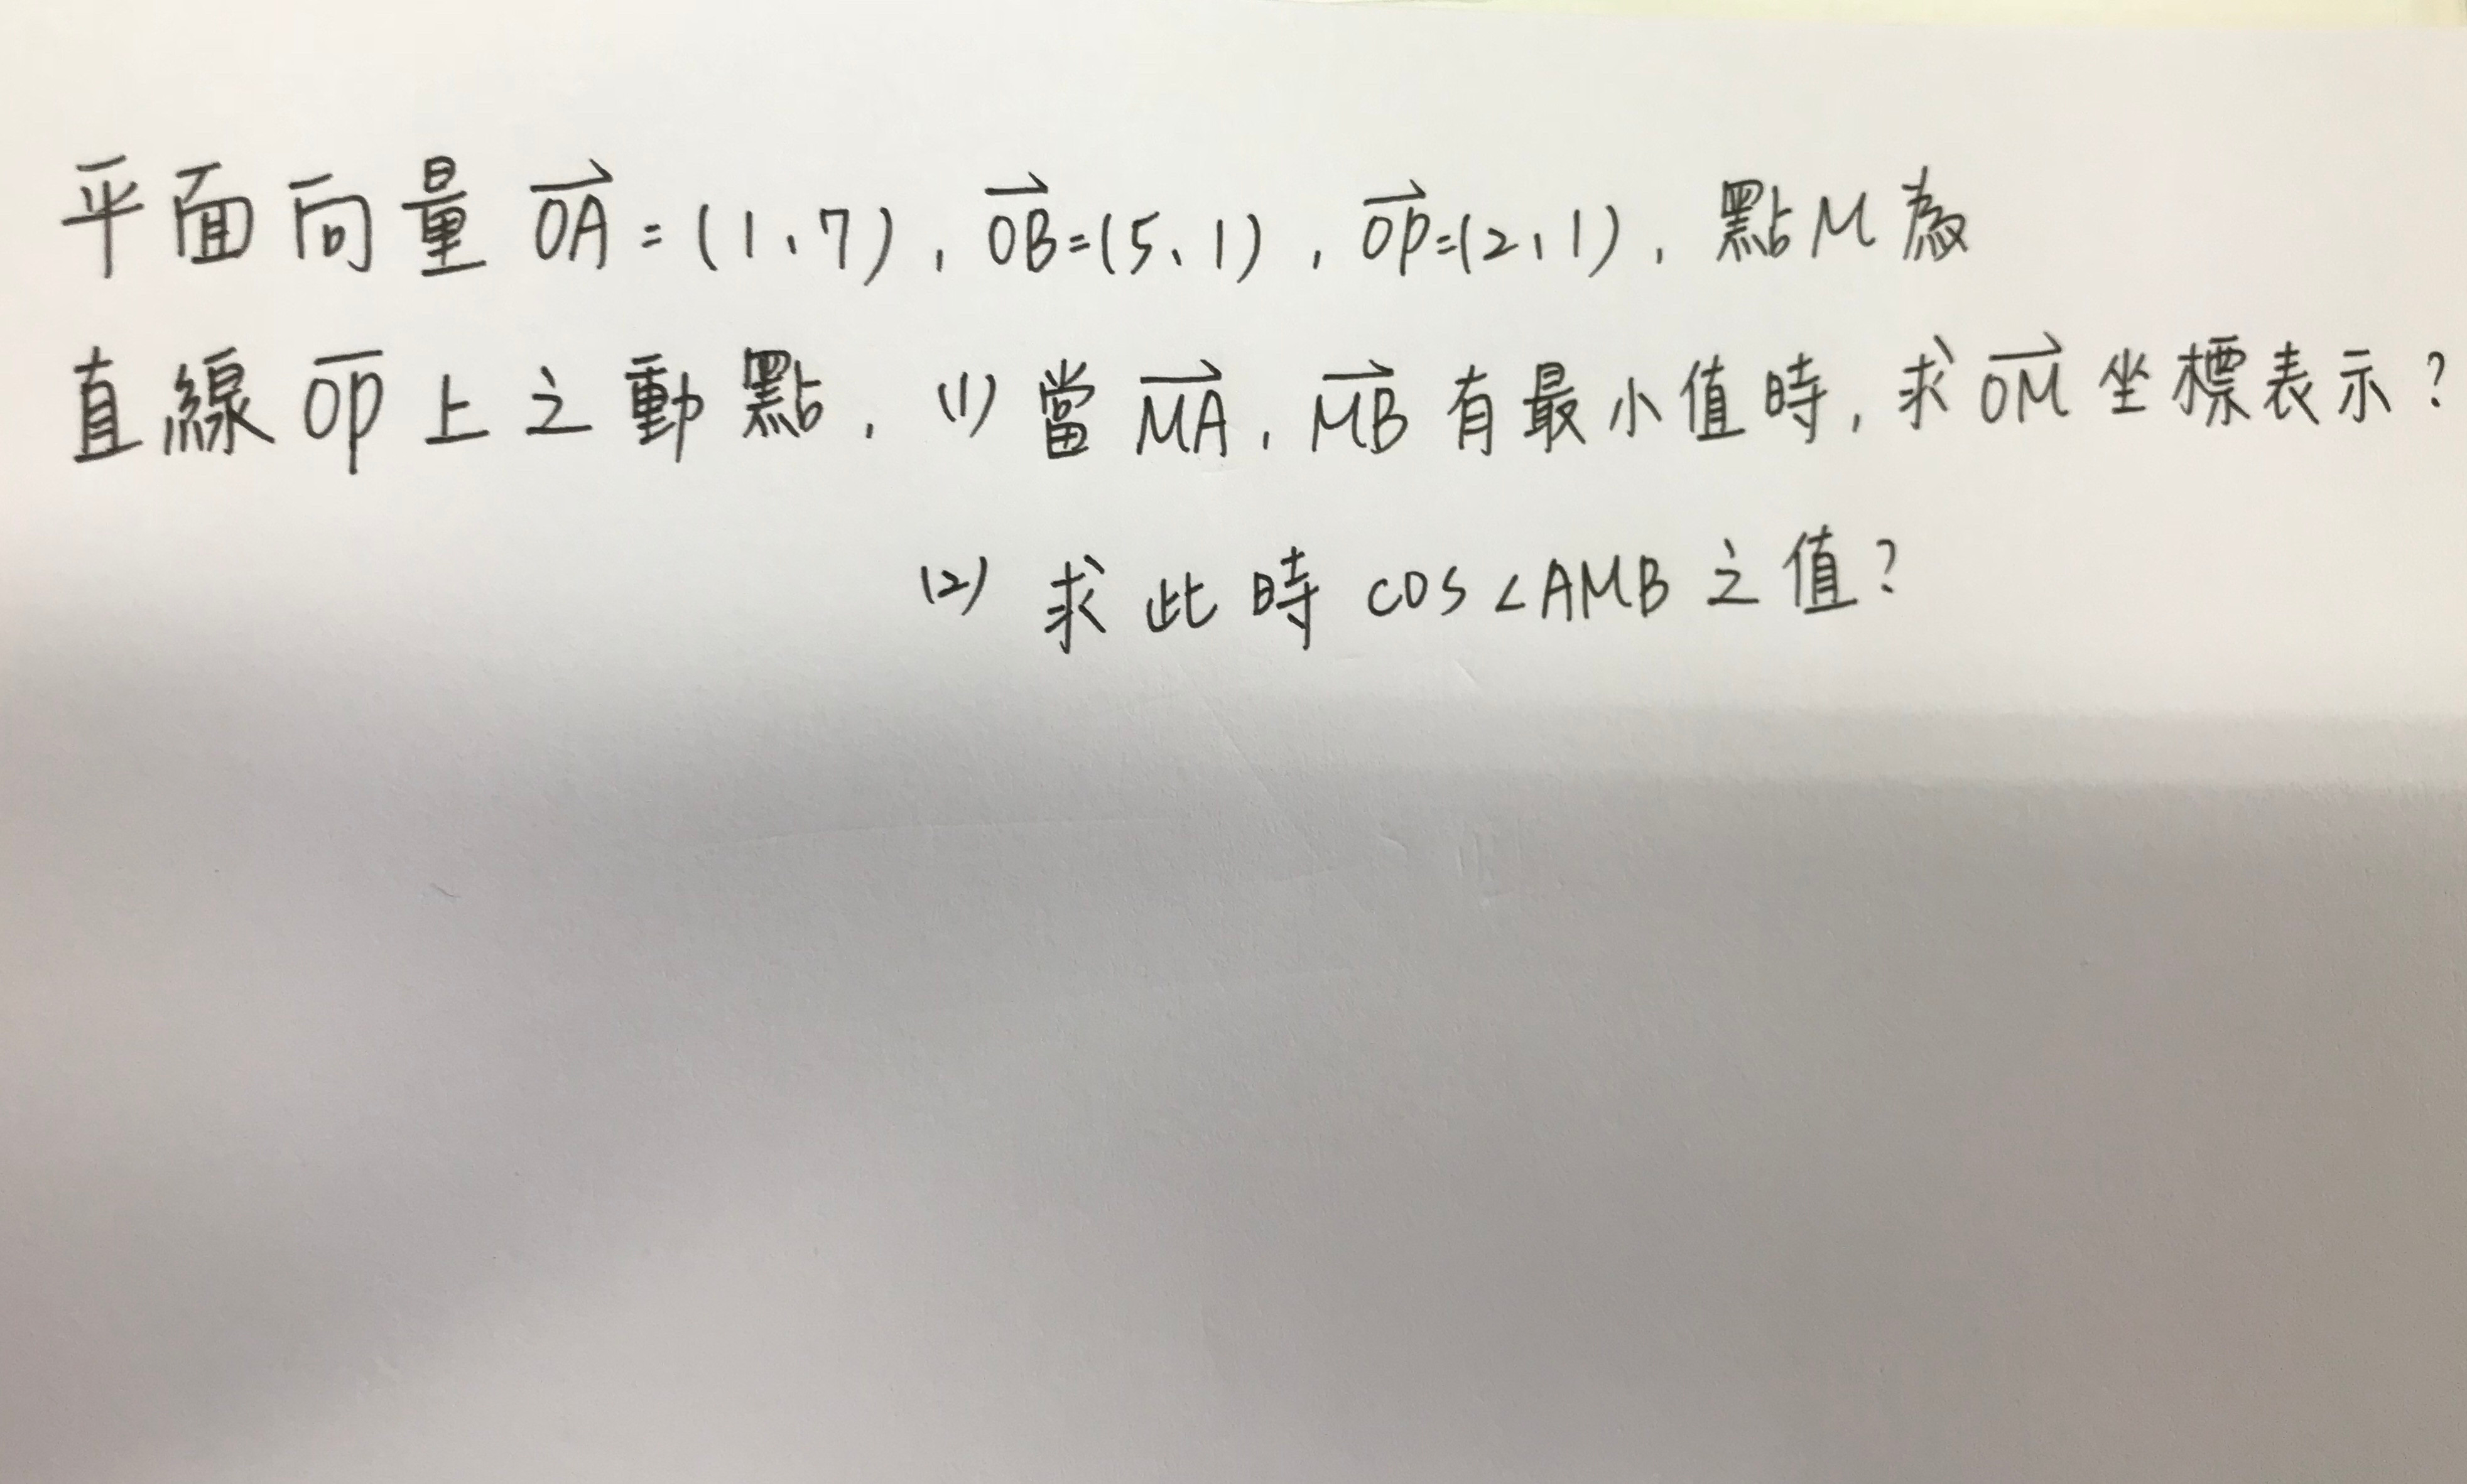 平面向量 $\overrightarrow{OA}=(1、7)，\overrightarrow{OB}=(5、1)，\overrightarrow{OP}=(2,1)，點M為
直線 $\overline{OP}$ 上之動點，(1) 當 $\overrightarrow{MA}，\overrightarrow{MB}$ 有最小值時，求 $\overrightarrow{OM}$ 坐標表示？
(2) 求此時 cos∠AMB 之值？